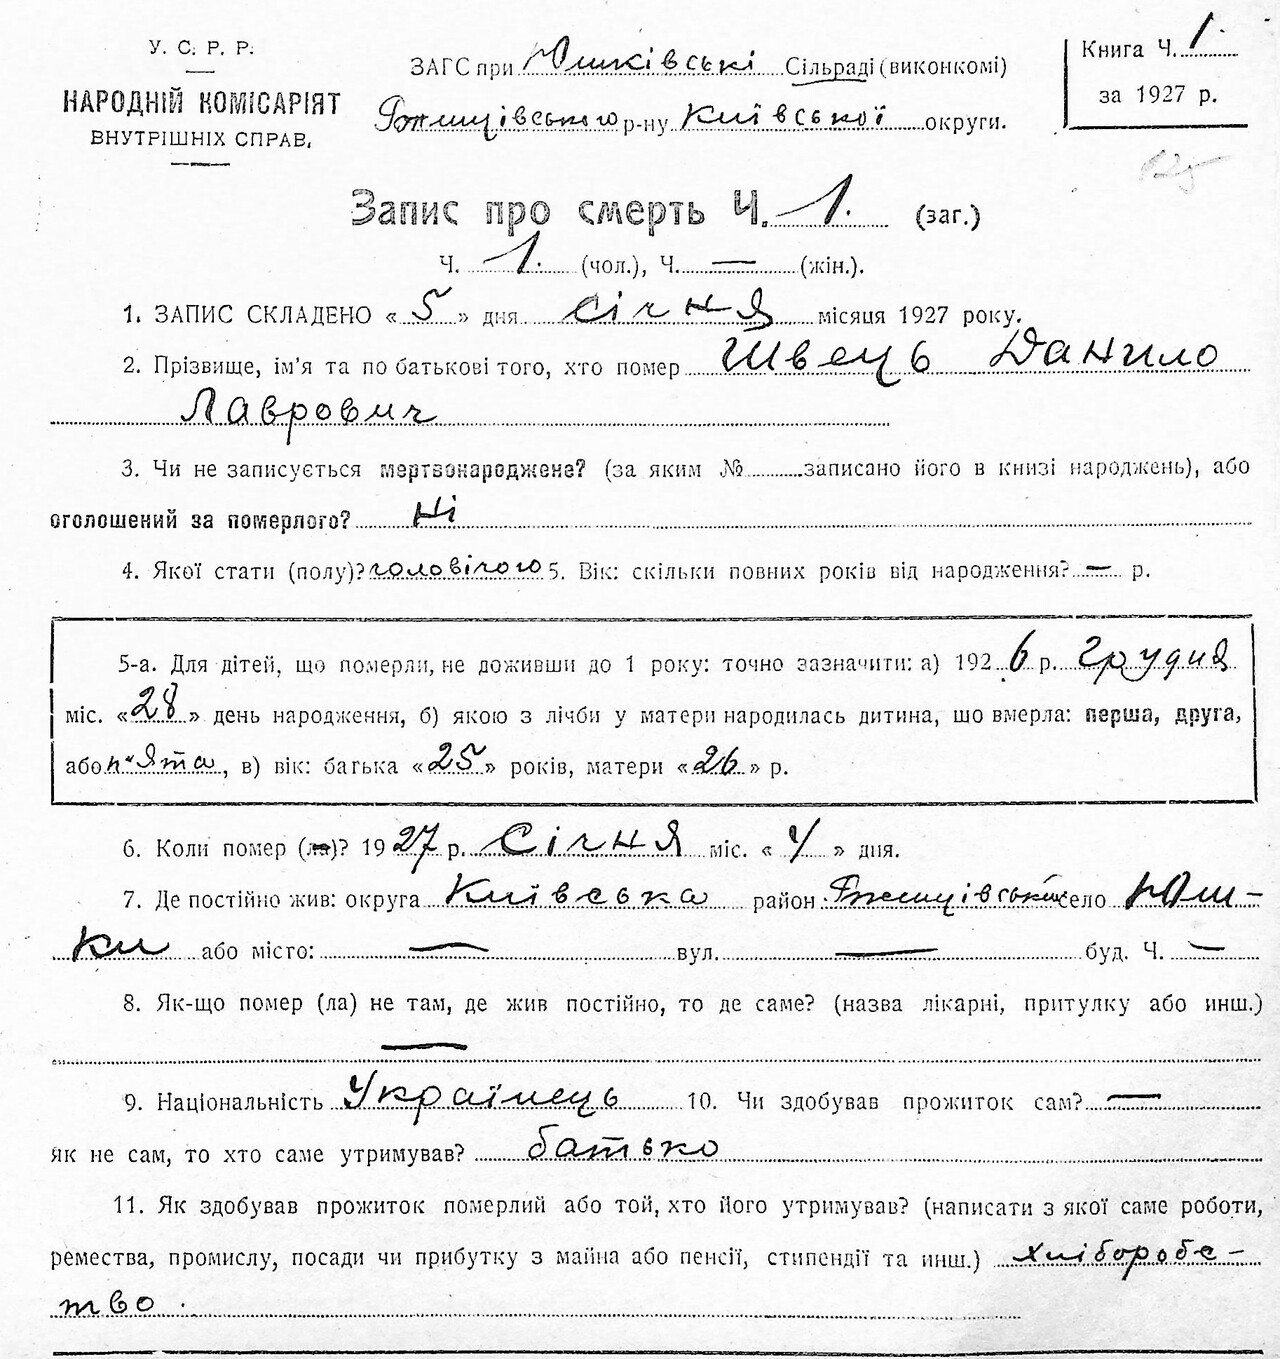 У. С. Р. Р.
НАРОДНІЙ КОМІСАРІЯТ
ВНУТРІШНІХ СПРАВ.
ЗАГС при Юшківські Сільраді (виконкомі)
Ржищівського р-ну Київської округи.
Книга Ч. 1.
за 1927 р.
125
Запис про смерть Ч. 1. (заг.)
Ч. 1. (чол.), Ч. — (жін.).
1. ЗАПИС СКЛАДЕНО « 5 » дня січня місяця 1927 року.
2. Прізвище, ім'я та по батькові того, хто помер Швець Данило
Лаврович
3. Чи не записується мертвонароджене? (за яким № записано його в книзі народжень), або
оголошений за померлого? Ні
4. Якої стати (полу)? чоловічого 5. Вік: скільки повних років від народження? — р.
5-а. Для дітей, що померли, не доживши до 1 року: точно зазначити: а) 192 6 р. грудня
міс. « 28 » день народження, б) якою з лічби у матери народилась дитина, що вмерла: перша, друга,
або п'ята, в) вік: батька « 25 » років, матери « 26 » р.
6. Коли помер (ла)? 19 27 р. Січня міс. « 4 » дня.
7. Де постійно жив: округа Київська район Ржищівський село Юш-
ки або місто: — вул. — буд. Ч. —
8. Як-що помер (ла) не там, де жив постійно, то де саме? (назва лікарні, притулку або инш.)
—
9. Національність Українець 10. Чи здобував прожиток сам? —
як не сам, то хто саме утримував? батько
11. Як здобував прожиток померлий або той, хто його утримував? (написати з якої саме роботи,
ремества, промислу, посади чи прибутку з майна або пенсії, стипендії та инш.) хліборобс-
тво.